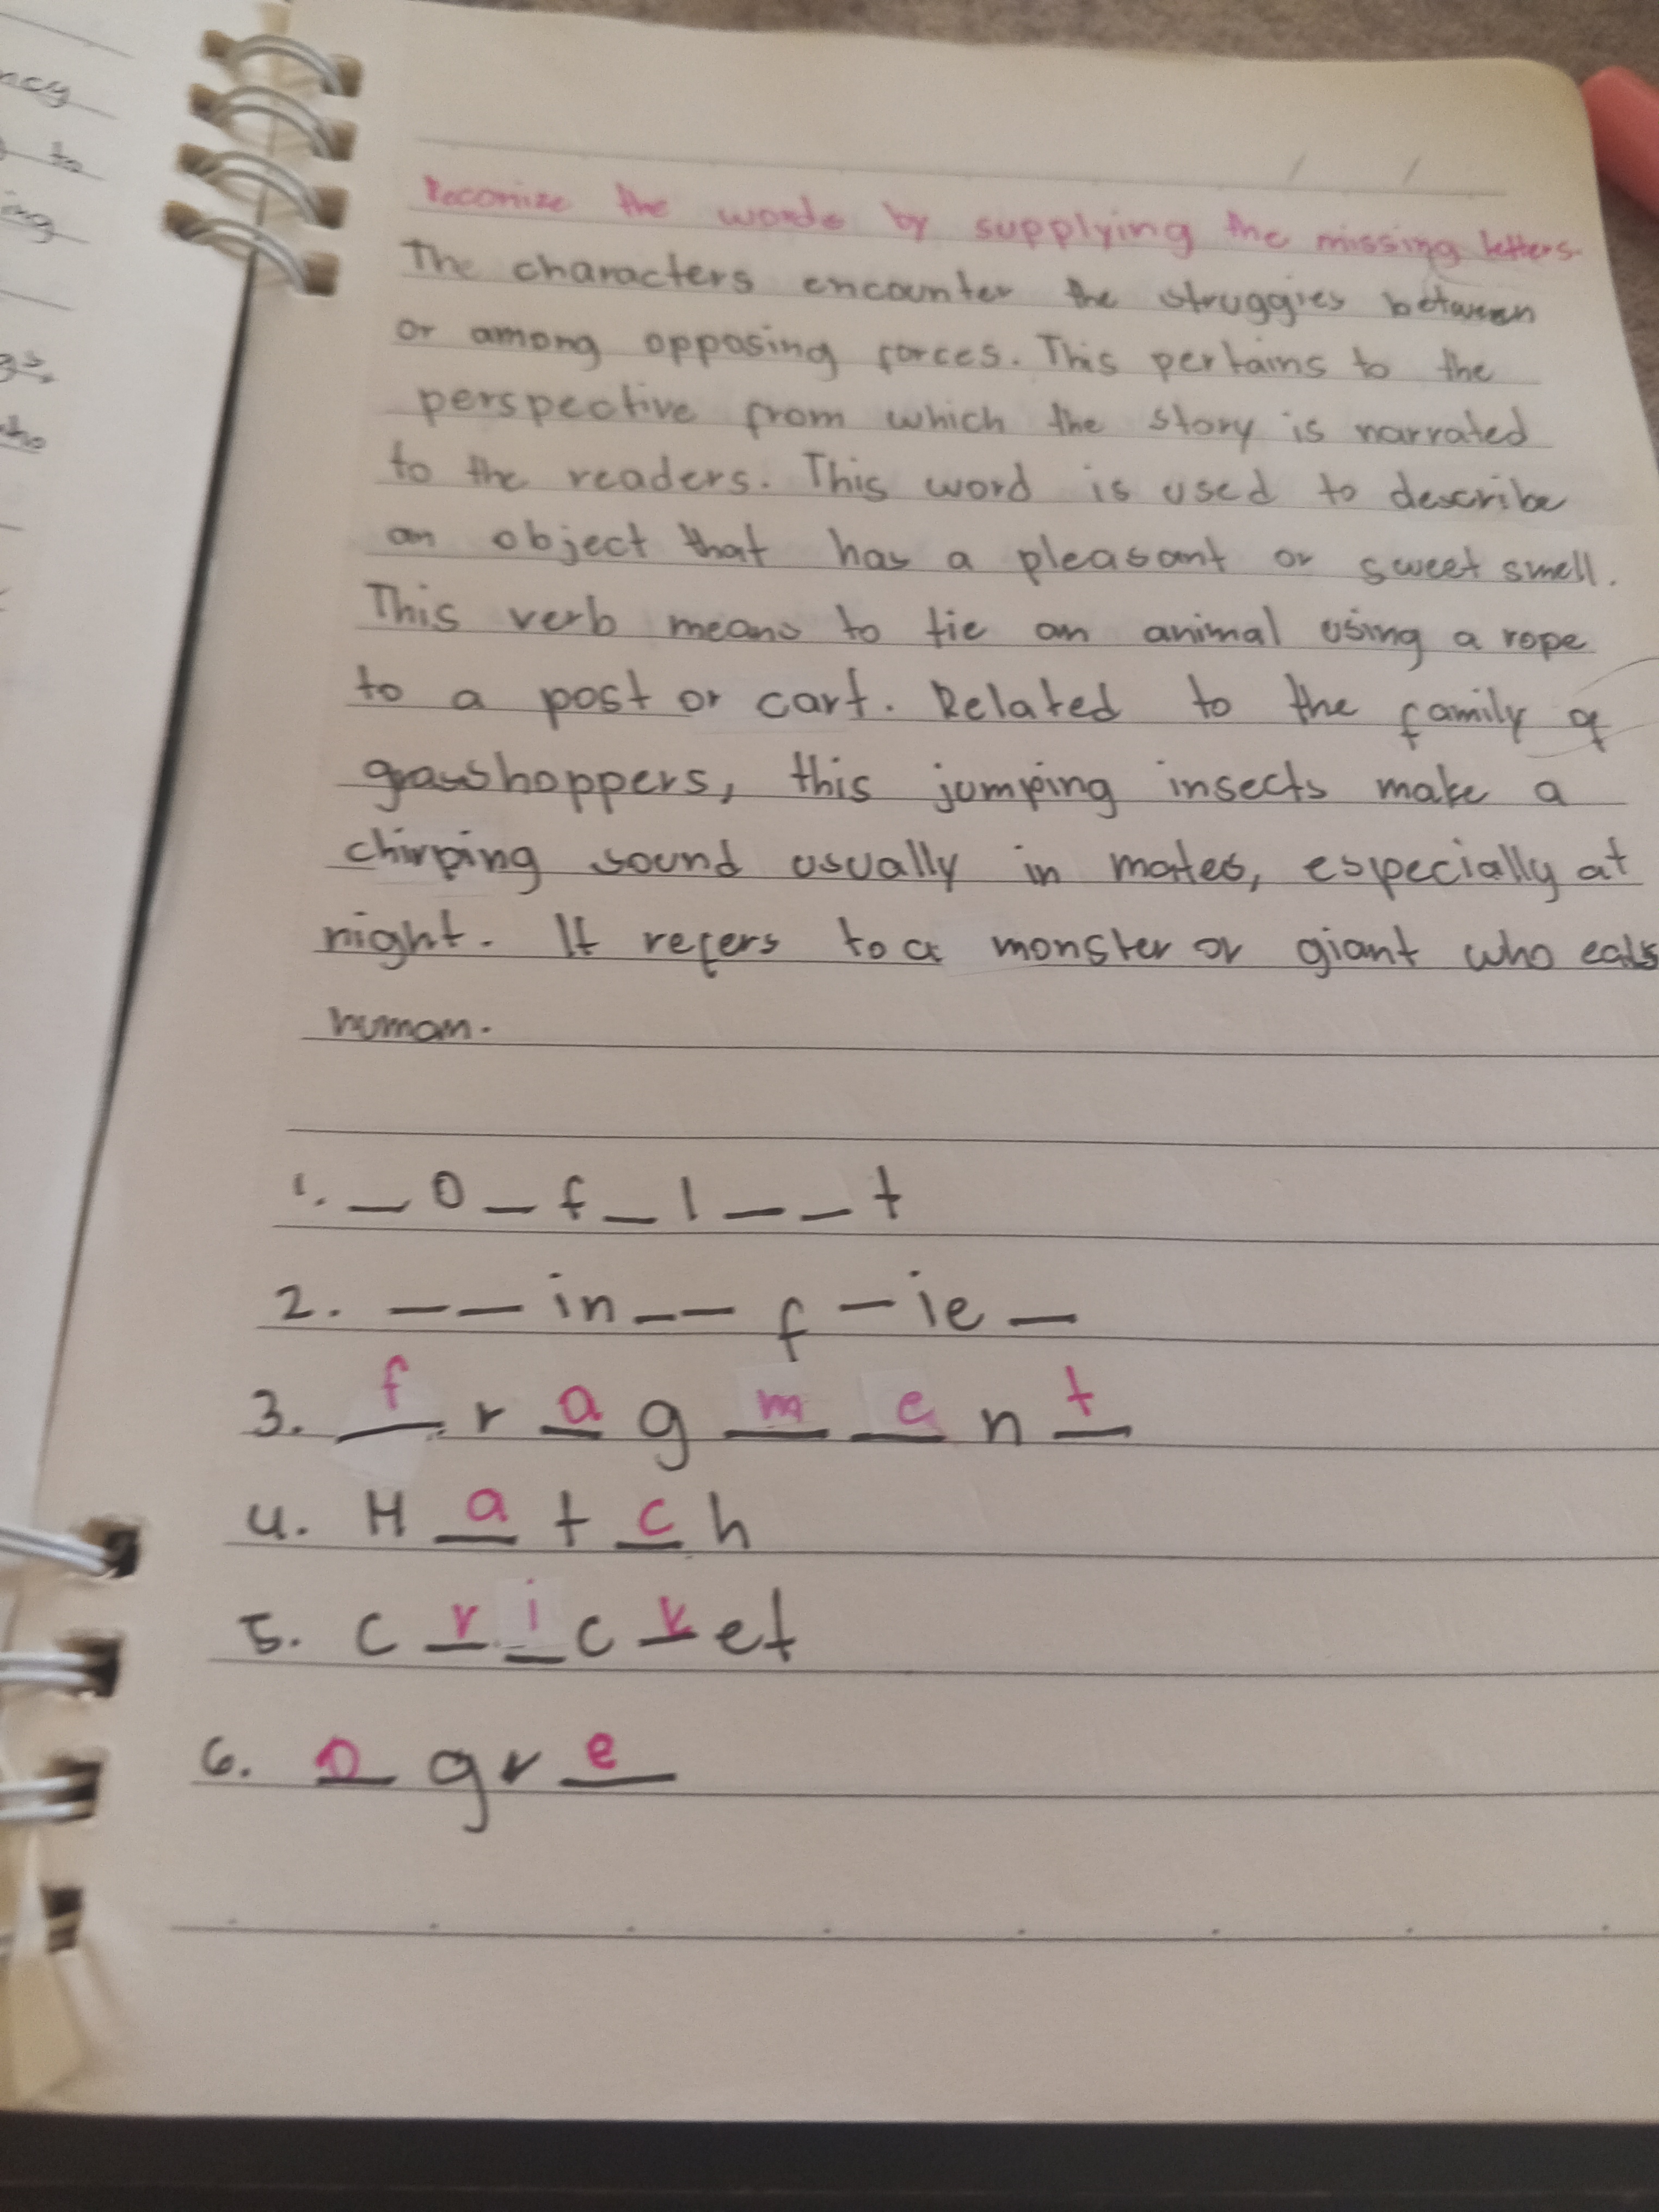 ncy
to
ing
Reconize the words by supplying the missing letters.
The characters encounter the struggles between
or among opposing forces. This pertains to the
perspective from which the story is narrated
to the readers. This word is used to describe
an object that has a pleasant or sweet smell.
This verb means to tie an animal using a rope
to a post or cart. Related to the family of
grasshoppers, this jumping insects make a
chirping sound usually in mates, especially at
night. It refers to a monster or giant who eats
human.
1. _ O _ f _ l _ _ t
2. _ _ in _ _ f _ ie _
3. f r a g m e n t
4. H a t c h
5. c r i c k et
6. o g r e